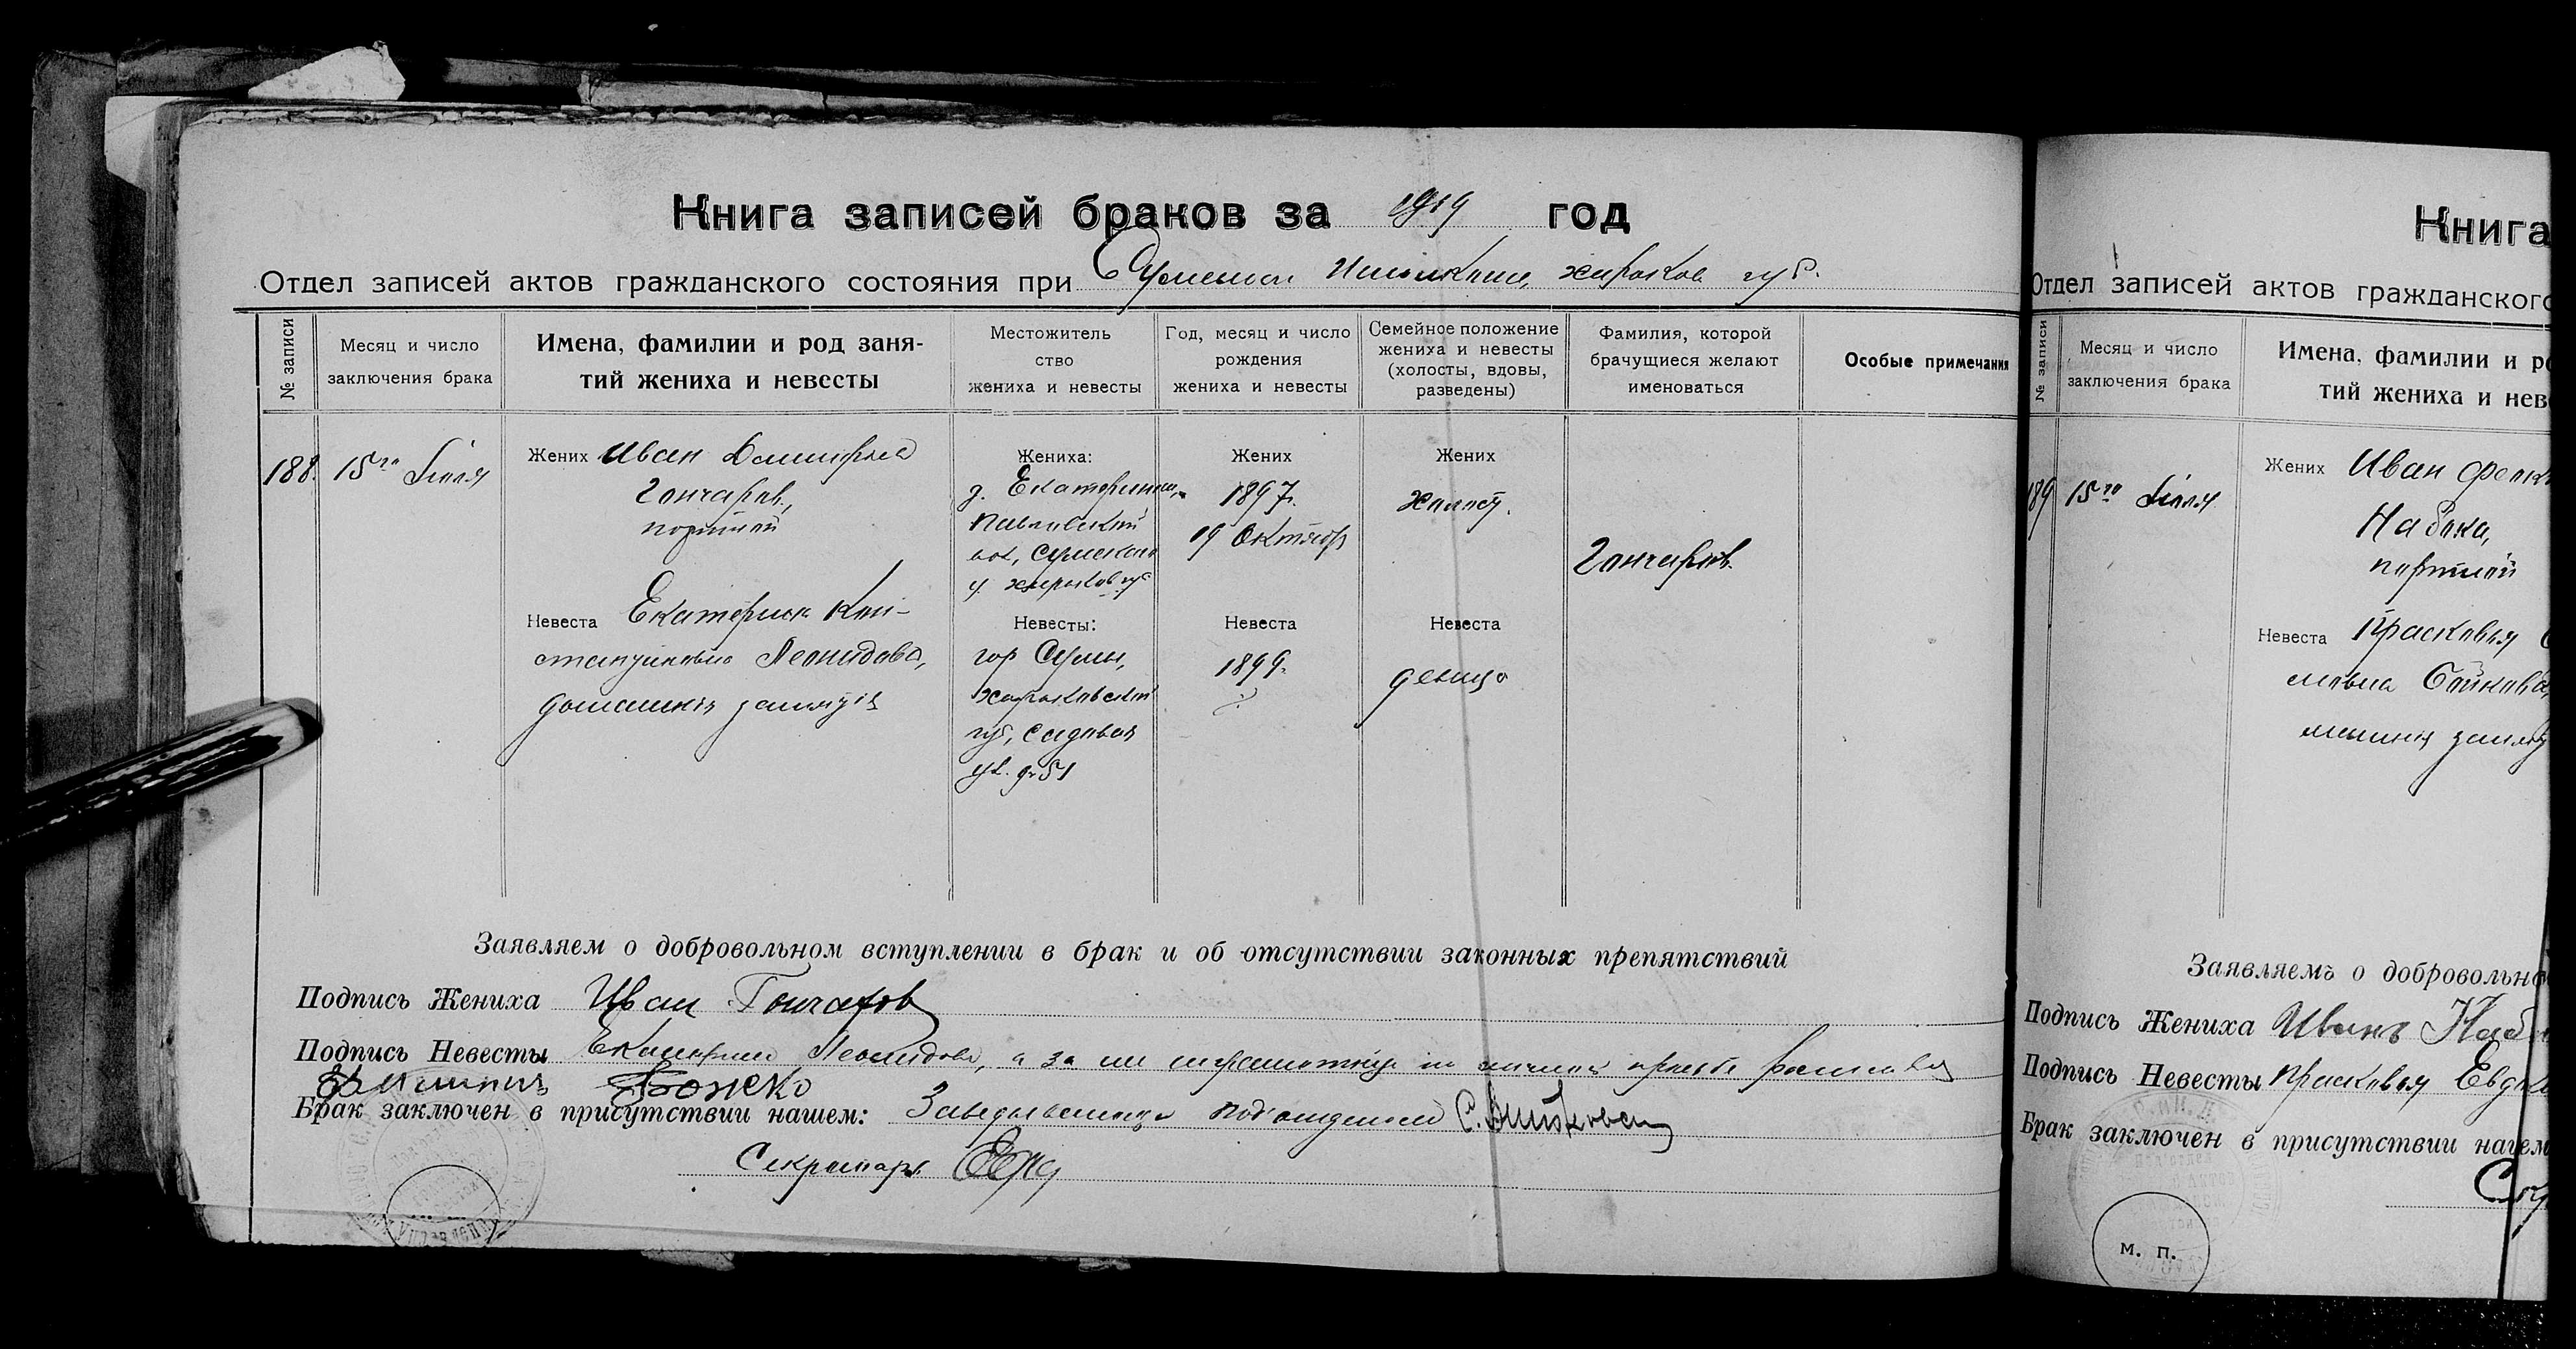 Книга записей браков за 1919 год
Отдел записей актов гражданского состояния при Сумском Исполкоме, харьков губ.
№ записи
Месяц и число заключения брака
Имена, фамилии и род заня-
тий жениха и невесты
Местожитель
ство
жениха и невесты
Год, месяц и число
рождения
жениха и невесты
Семейное положение
жениха и невесты
(холосты, вдовы,
разведены)
Фамилия, которой
брачущиеся желают
именоваться
Особые примечания
188.
15го Іюля
Жених Иван
Гончаров,
портной
Невеста Екатерина Кон-
стантиновна Леонидова,
домашнія занятія
Жениха:
д.
Павловской
вол, Сумскаго
у. харьков губ
Невесты:
гор Сумы,
харьковской
губ, Садовая
ул. д 51
Жених
1897.
19 Октября
Невеста
1899.
Жених
холост.
Невеста
девица
Гончаров.
Заявляем о добровольном вступлении в брак и об отсутствии законных препятствий
Подпись Жениха Иван Гончаров
Подпись Невесты Екатерина Леонидова, а за ея неграмотную по личной просьбе расписался
Божко
Брак заключен в присутствии нашем: Заведывающий подотделом
Секретарь
Книга
Отдел записей актов гражданского
№ записи
Месяц и число
заключения брака
Имена, фамилии и ро
тий жениха и нев
189
15го Іюля
Жених Иван
Набока,
портной
Невеста Прасковья
Заявляемъ о добровольно
Подпись Жениха Иванъ Набо
Подпись Невесты Прасковья Евдок
Брак заключен в присутствии нашем
м. п.